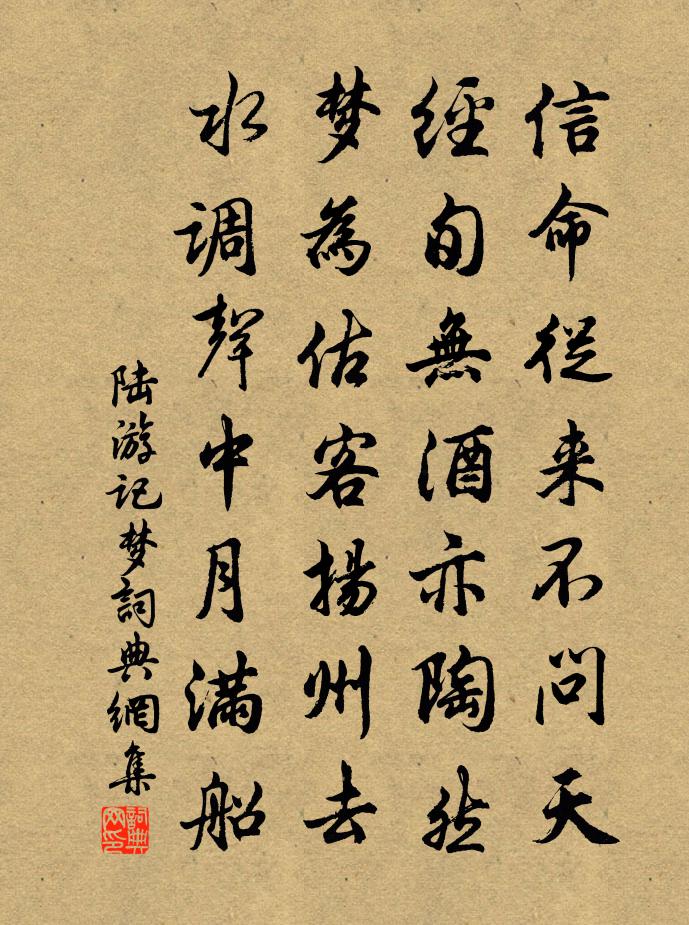 信命從来不問天
經旬無酒亦陶然
梦為估客揚州去
水調聲中月满船
陆游记梦詞典網集
詞典网印